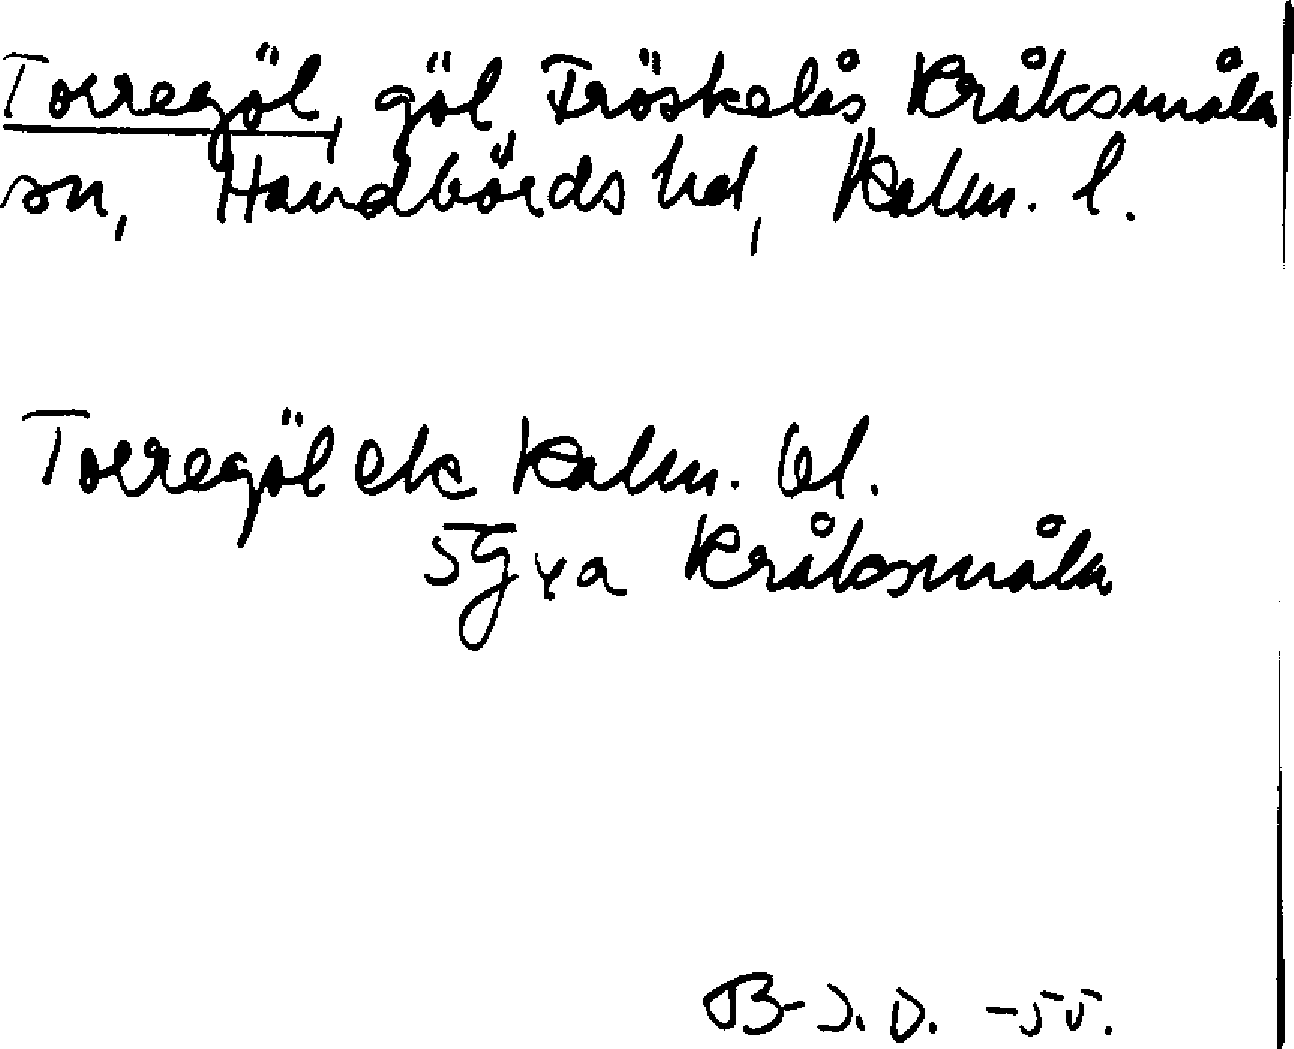 Torregöl, göl, Fröskelås Kråksmåla
sn, Handbörds hd, Kalm. l.
Torregöl ek Kalm. bl.
5G xa Kråksmåla
B-I. D. -55.